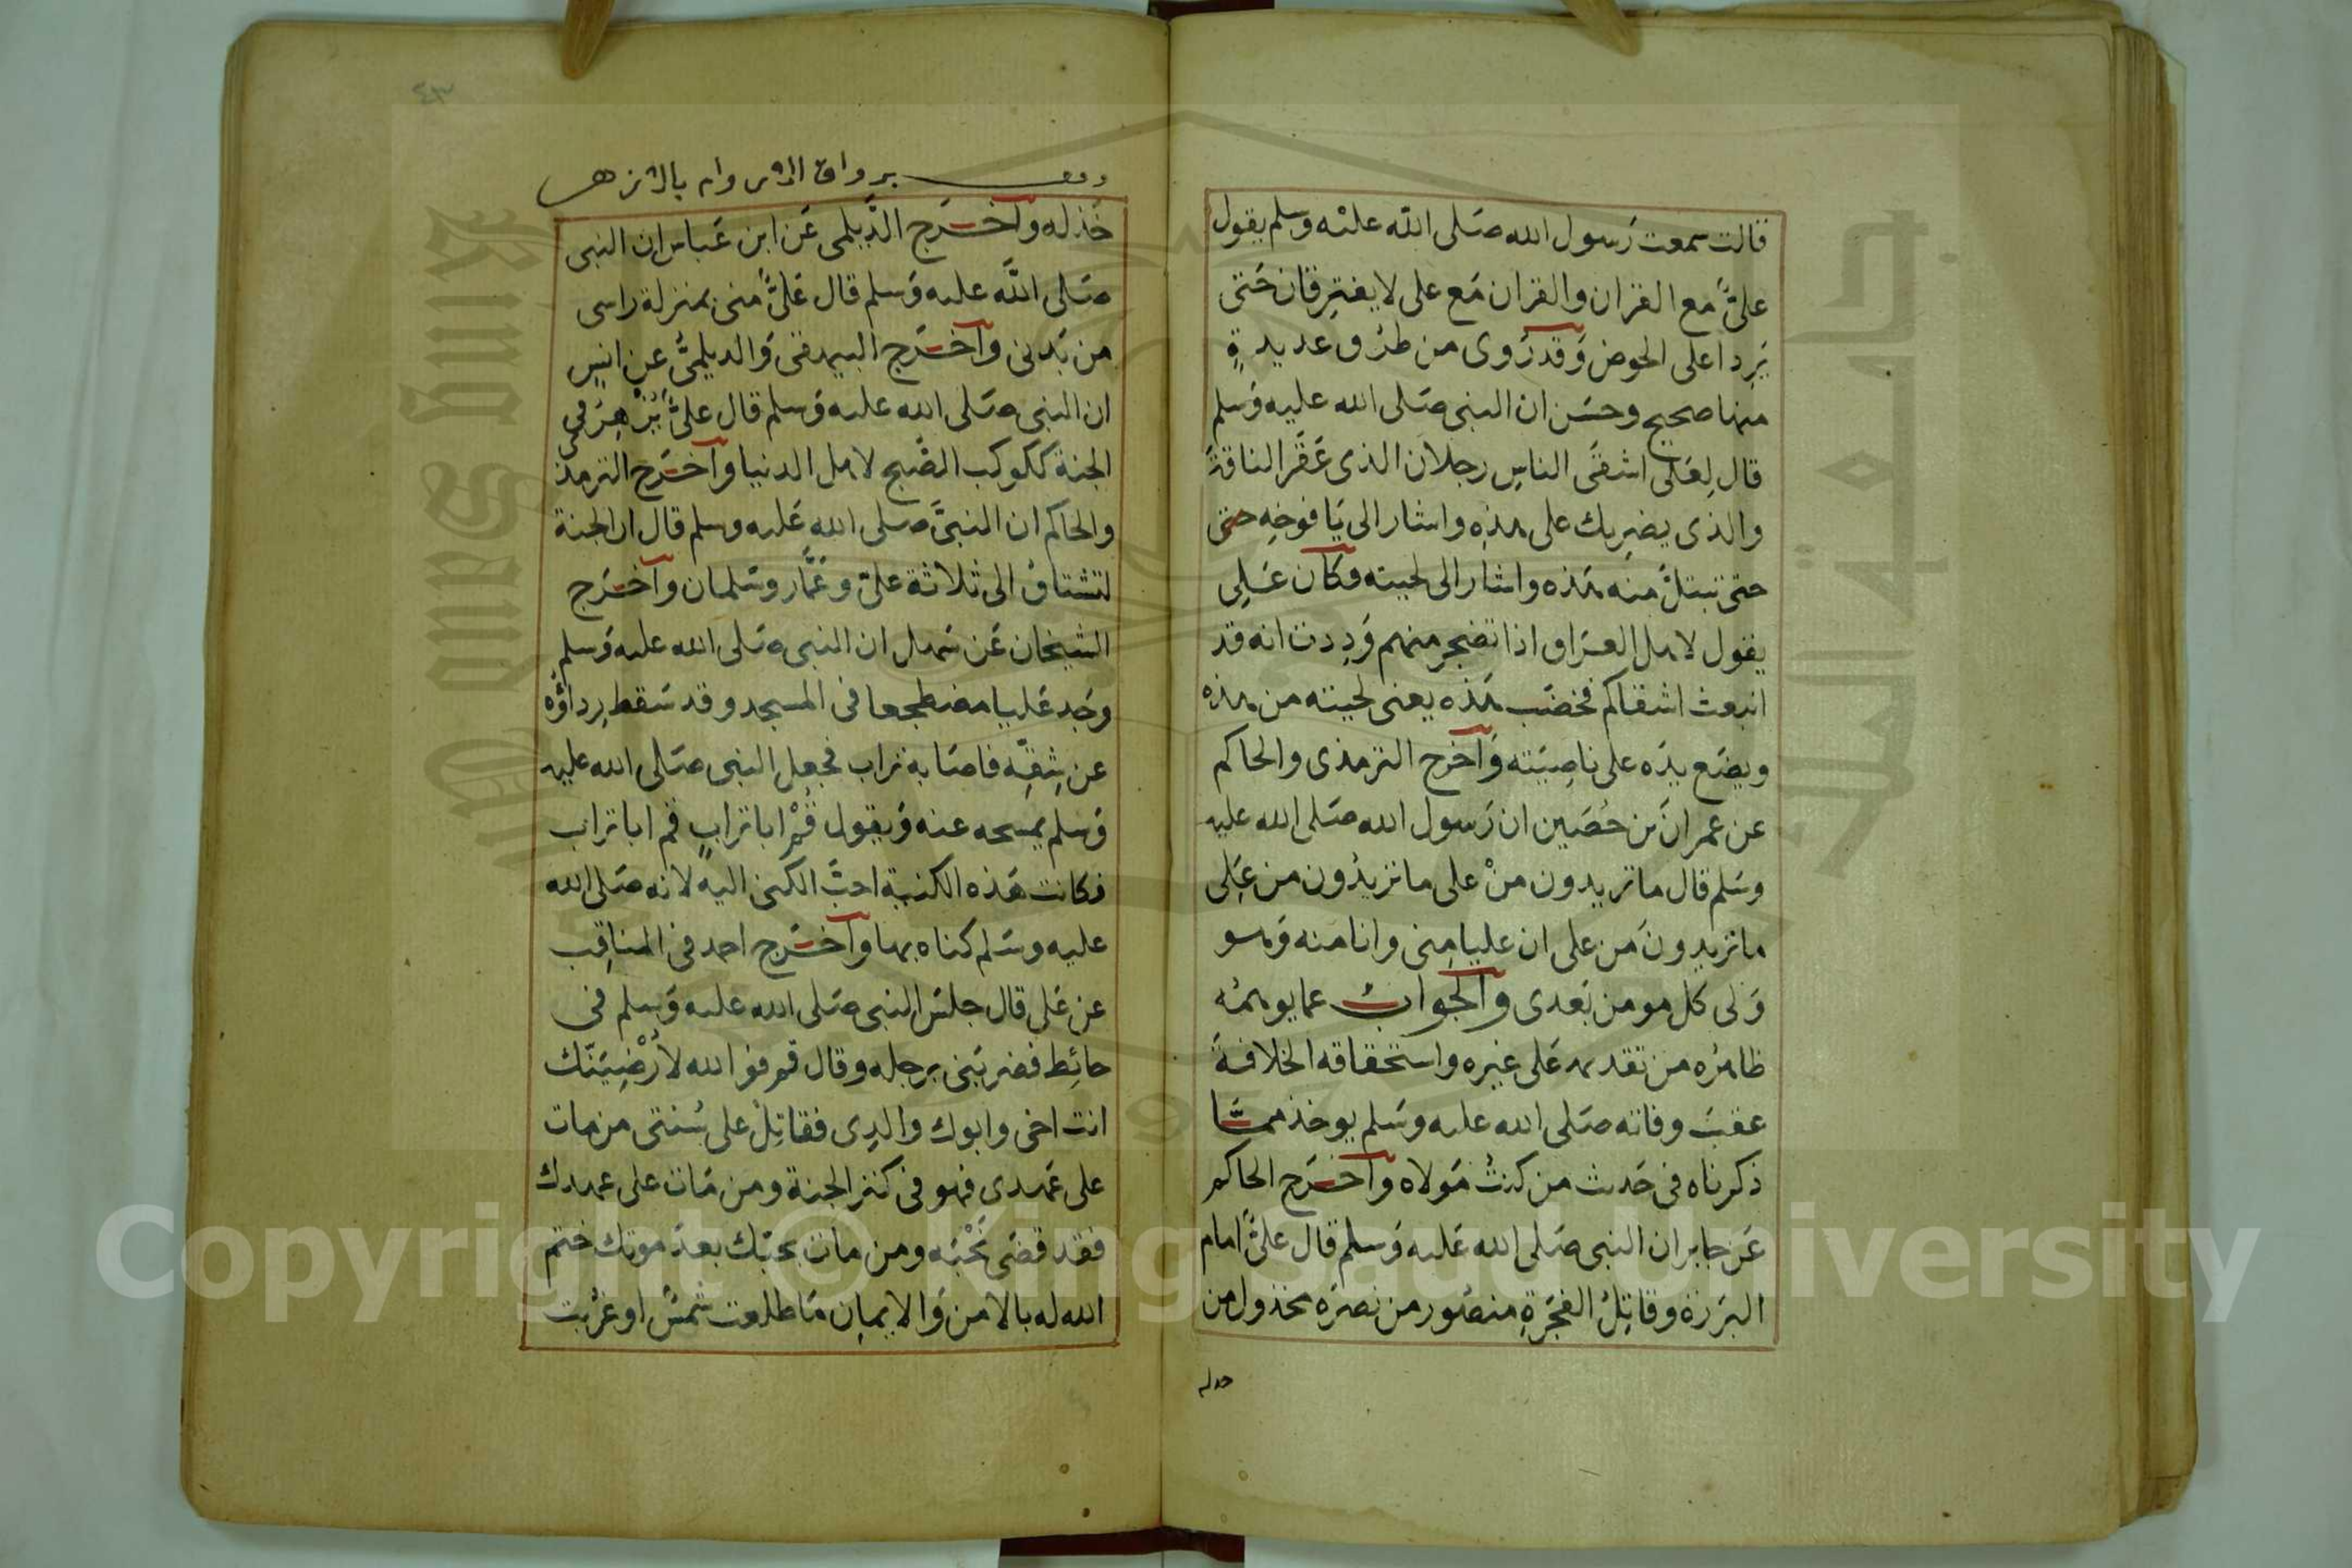 قالت سمعت رسول الله صلى الله عليه وسلم يقول
علىٌّ مع القران والقران مع على لا يفترقان حتى
يردا على الحوض وقد روى من طرق عديدة
منها صحيح وحسن ان النبى صلى الله عليه وسلم
قال لعلى اشقى الناس رجلان الذى عقر الناقة
والذى يضربك على هذه واشار الى يافوخه حتى
حتى تبتل منه هذه واشار الى لحيته وكان على
يقول لاهل العراق اذا تضجر منهم وددت انه قد
انبعث اشقاكم فخضب هذه يعنى لحيته من هذه
ويضع يده على ناصيته وآخرج الترمذى والحاكم
عن عمران بن حصين ان رسول الله صلى الله عليه
وسلم قال ما تريدون من على ما تريدون من على
ما تريدون من على ان عليا منى وانا منه وهو
ولى كل مومن بعدى والجواب عما يوهمه
ظاهره من تقدمه على غيره واستحقاقه الخلافة
عقب وفاته صلى الله عليه وسلم يوخذ مما
ذكرناه فى حديث من كنت مولاه وآخرج الحاكم
عن جابر ان النبى صلى الله عليه وسلم قال علىٌّ امام
البررة وقاتل الفجرة منصور من نصره مخذول من
خذله
٤٣
خذله وآخرج الديلمى عن ابن عباس ان النبى
صلى الله عليه وسلم قال علىٌّ منى بمنزلة راسى
من بدنى وآخرج البيهقى والديلمى عن انس
ان النبى صلى الله عليه وسلم قال علىٌّ يزهر فى
الجنة ككوكب الصبح لاهل الدنيا وآخرج الترمذى
والحاكم ان النبى صلى الله عليه وسلم قال ان الجنة
لتشتاق الى ثلاثة علىّ وعمّار وسلمان وآخرج
الشيخان عن سهل ان النبى صلى الله عليه وسلم
وجد عليا مضطجعا فى المسجد وقد سقط رداؤه
عن شقه فاصابه تراب فجعل النبى صلى الله عليه
وسلم يمسحه عنه ويقول قم ابا تراب قم ابا تراب
فكانت هذه الكنية احبّ الكنى اليه لانه صلى الله
عليه وسلم كناه بها وآخرج احمد فى المناقب
عن على قال جلس النبى صلى الله عليه وسلم فى
حائط فضربنى برجله وقال قم فوالله لأرضينّك
انت اخى وابوك والدى فقاتل على سنتى من مات
على عهدى فهو فى كنز الجنة ومن مات على عهدك
فقد قضى نحبه ومن مات بحبك بعد موتك ختم
الله له بالامن والايمان ما طلعت شمس او غربت
Copyright © King Saud University
King Saud University
جامعة الملك